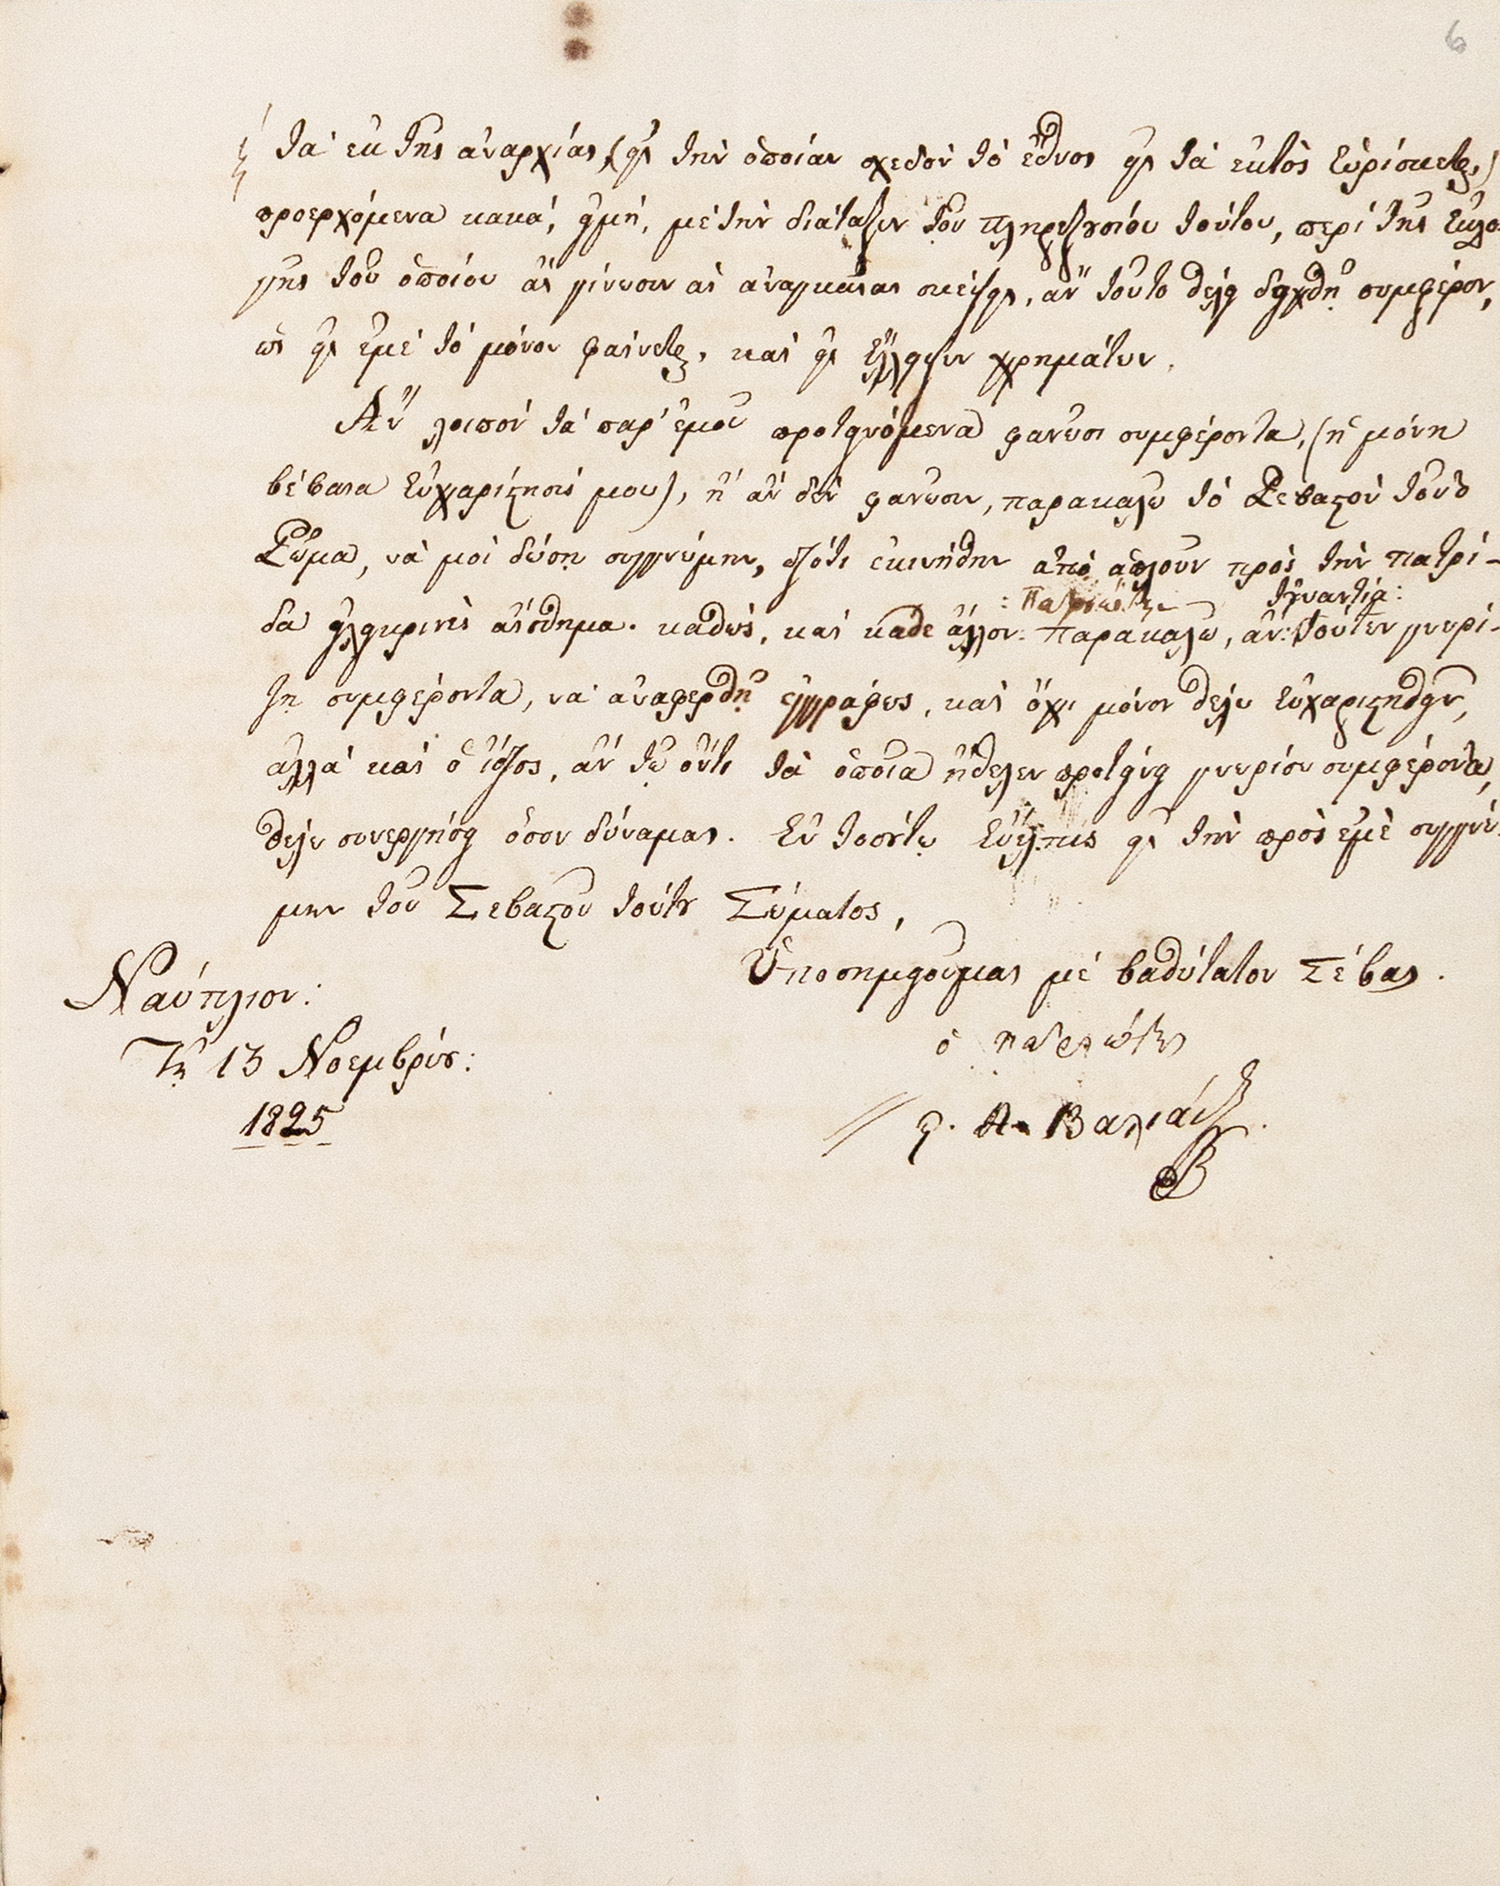 6
τὰ ἐκ τῆς ἀναρχίας, (εἰς τὴν ὁποίαν σχεδὸν τὸ ἔθνος εἰς τὰ ἐκτὸς εὑρίσκεται,)
προερχόμενα κακά, εἰμή, μὲ τὴν διάταξιν τοῦ πληρεξουσίου τούτου, περὶ τῆς ἐκλο-
γῆς τοῦ ὁποίου ἂς γίνωσιν αἱ ἀναγκαῖαι σκέψεις, ἂν τοῦτο θέλει δειχθῇ συμφέρον,
ὡς εἰς ἐμὲ τὸ μόνον φαίνεται, καὶ εἰς ἔλλειψιν χρημάτων.
Ἂν λοιπὸν τὰ παρ' ἐμοῦ προτεινόμενα φανῶσι συμφέροντα, (ἡ μόνη
βέβαια εὐχαρίστησίς μου), ἢ ἂν δὲν φανῶσιν, παρακαλῶ τὸ Σεβαστὸν τοῦτο
Σῶμα, νὰ μοὶ δώσῃ συγγνώμην, διότι ἐκινήθην ἀπὸ ἁπλοῦν πρὸς τὴν πατρί-
δα εἰλικρινὲς αἴσθημα. καθώς, καὶ κάθε ἄλλον: παρακαλῶ, ἂν: τοὐτέν γνωρί-
: Πατριώτην τἠναντία:
ζῃ συμφέροντα, νὰ ἀναφερθῇ ἐγγράφως, καὶ ὄχι μόνον θέλω εὐχαριστηθεῖν,
ἀλλὰ καὶ ὁ ἴδιος, ἂν τῷ ὄντι τὰ ὁποῖα ἤθελεν προτείνει γνωρίσω συμφέροντα,
θέλω συνεργήσει ὅσον δύναμαι. Ἐν τοσούτῳ εὔελπις εἰς τὴν πρὸς ἐμὲ συγγνώ-
μην τοῦ Σεβαστοῦ τούτου Σώματος,
Ὑποσημειοῦμαι μὲ βαθύτατον Σέβας.
Ναύπλιον:
Τῇ 13 Νοεμβρίου:
1825
ὁ πατριώτης